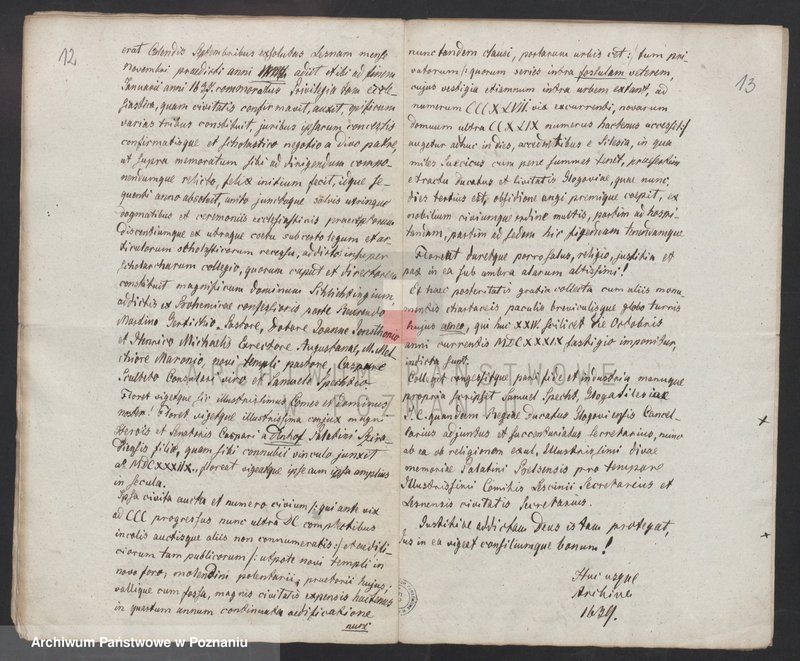 12
erat Calendis Septembribus exsolutus Lesnam mense
Novembri praedicti anni adiit et ibi ad finem
Januarii anni 1634 commoratus Privilegia tam eccle-
siastica, quam civitatis confirmavit, auxit, opificum
varias tribus constituit, juribus ipsarum concessis
confirmatisque et scholastico negotio a divo patre,
ut supra memoratum sibi ad dirigendum compo-
nendumque relicto, felix initium fecit, idque se-
quenti anno absolvit, unito junctoque salvis utrinque
dogmatibus et ceremoniis ecclesiasticis praeceptorum
discentiumque ex utraque coetu sub certo legum et ar-
ticulorum scholasticorum recessu, addicto insuper
scholarcharum collegio, quorum caput et directorem
constituit magnificum dominum Schlichtingium,
addictis ex Bohemicae confessionis parte Reverendo
Martino Pastore, Doctore Joanne Jonsthonio
et Henrico Michaelis Correctore Augustanae, M. Mel-
chiore Maronio, novi templi pastore, Caspare
Consulari viro et Samuele Spechtio
Floret vigetque, sic illustrissimus Comes et Dominus
noster! Floret vigetque illustrissima conjux magni
Herois et Senatoris Caspari a Denhof Palatini Sira-
diensis filia, quam sibi connubii vinculo junxit
ao MDCXXXIIX, floreat vigeatque ipse cum ipsa amplius
in secula.
Ipsa civitas aucta et numero civium /: qui ante vix
ad CCC progressus nunc ultra DC completibus
incolis auctisque aliis non connumeratis :/ et aedifi-
ciorum tam publicorum /: utpote novi templi in
novo foro, molendini polentarii, praetorii hujus;
vallique cum fossa, magnis civitatis expensis hactenus
in quartum annum continuata aedificatione
nunc
13
nunc tandem clausi, portarum urbis cet: / tum pri-
vatorum /: quorum series intra fossulam veterem,
cujus vestigia etiamnum intra urbem extant, ad
numerum CCCXLVII via excurrenti, novarum
domuum ultra CCXLIX numerus hactenus accessit :/
augetur adhuc in dies, accedentibus e Silesia, in qua
miles Suecicus cum pene summus tenet, praesertim
e tractu ducatus et civitatis Glogoviae, quae nunc
dies tertius est, obsidione angi premique coepit, ex
nobilium civiumque ordine multis, partim ad hospi-
tandum, partim ad sedem hic figendam tenendamque
Floreat duretque porro salus, religio, justitia et
pax in ea sub umbra alarum altissimi!
Et haec posteritatis gratia collecta cum aliis monu-
mentis chartaceis paculis breviculisque globo turris
hujus aeneo, qui huc XXIX. scilicet die Octobris
anni currentis MDCXXXIX fastigio imponitur,
indicta sunt.
Collegit congessitque pari fide et industria manuque
propria scripsit Samuel Specht Gloga Silesiae
J.C. quondam Regiae Ducatus Glogoviensis Cancel-
larius adjunctus et succenturiatus Secretarius, nunc
ab ea ob religionem exul, Illustrissimi Divae
memoriae Palatini Belsensis pro tempore
Illustrissimi Comitis Lescinii Secretarius et
Lesnensis civitatis Secretarius.
Justitiae addictam Deus istam protegat,
Jus in ea vigeat consiliumque bonum!
Huc usque
Archive
1639.
ARCHIWUM PAŃSTWOWE
W POZNANIU
Archiwum Państwowe w Poznaniu